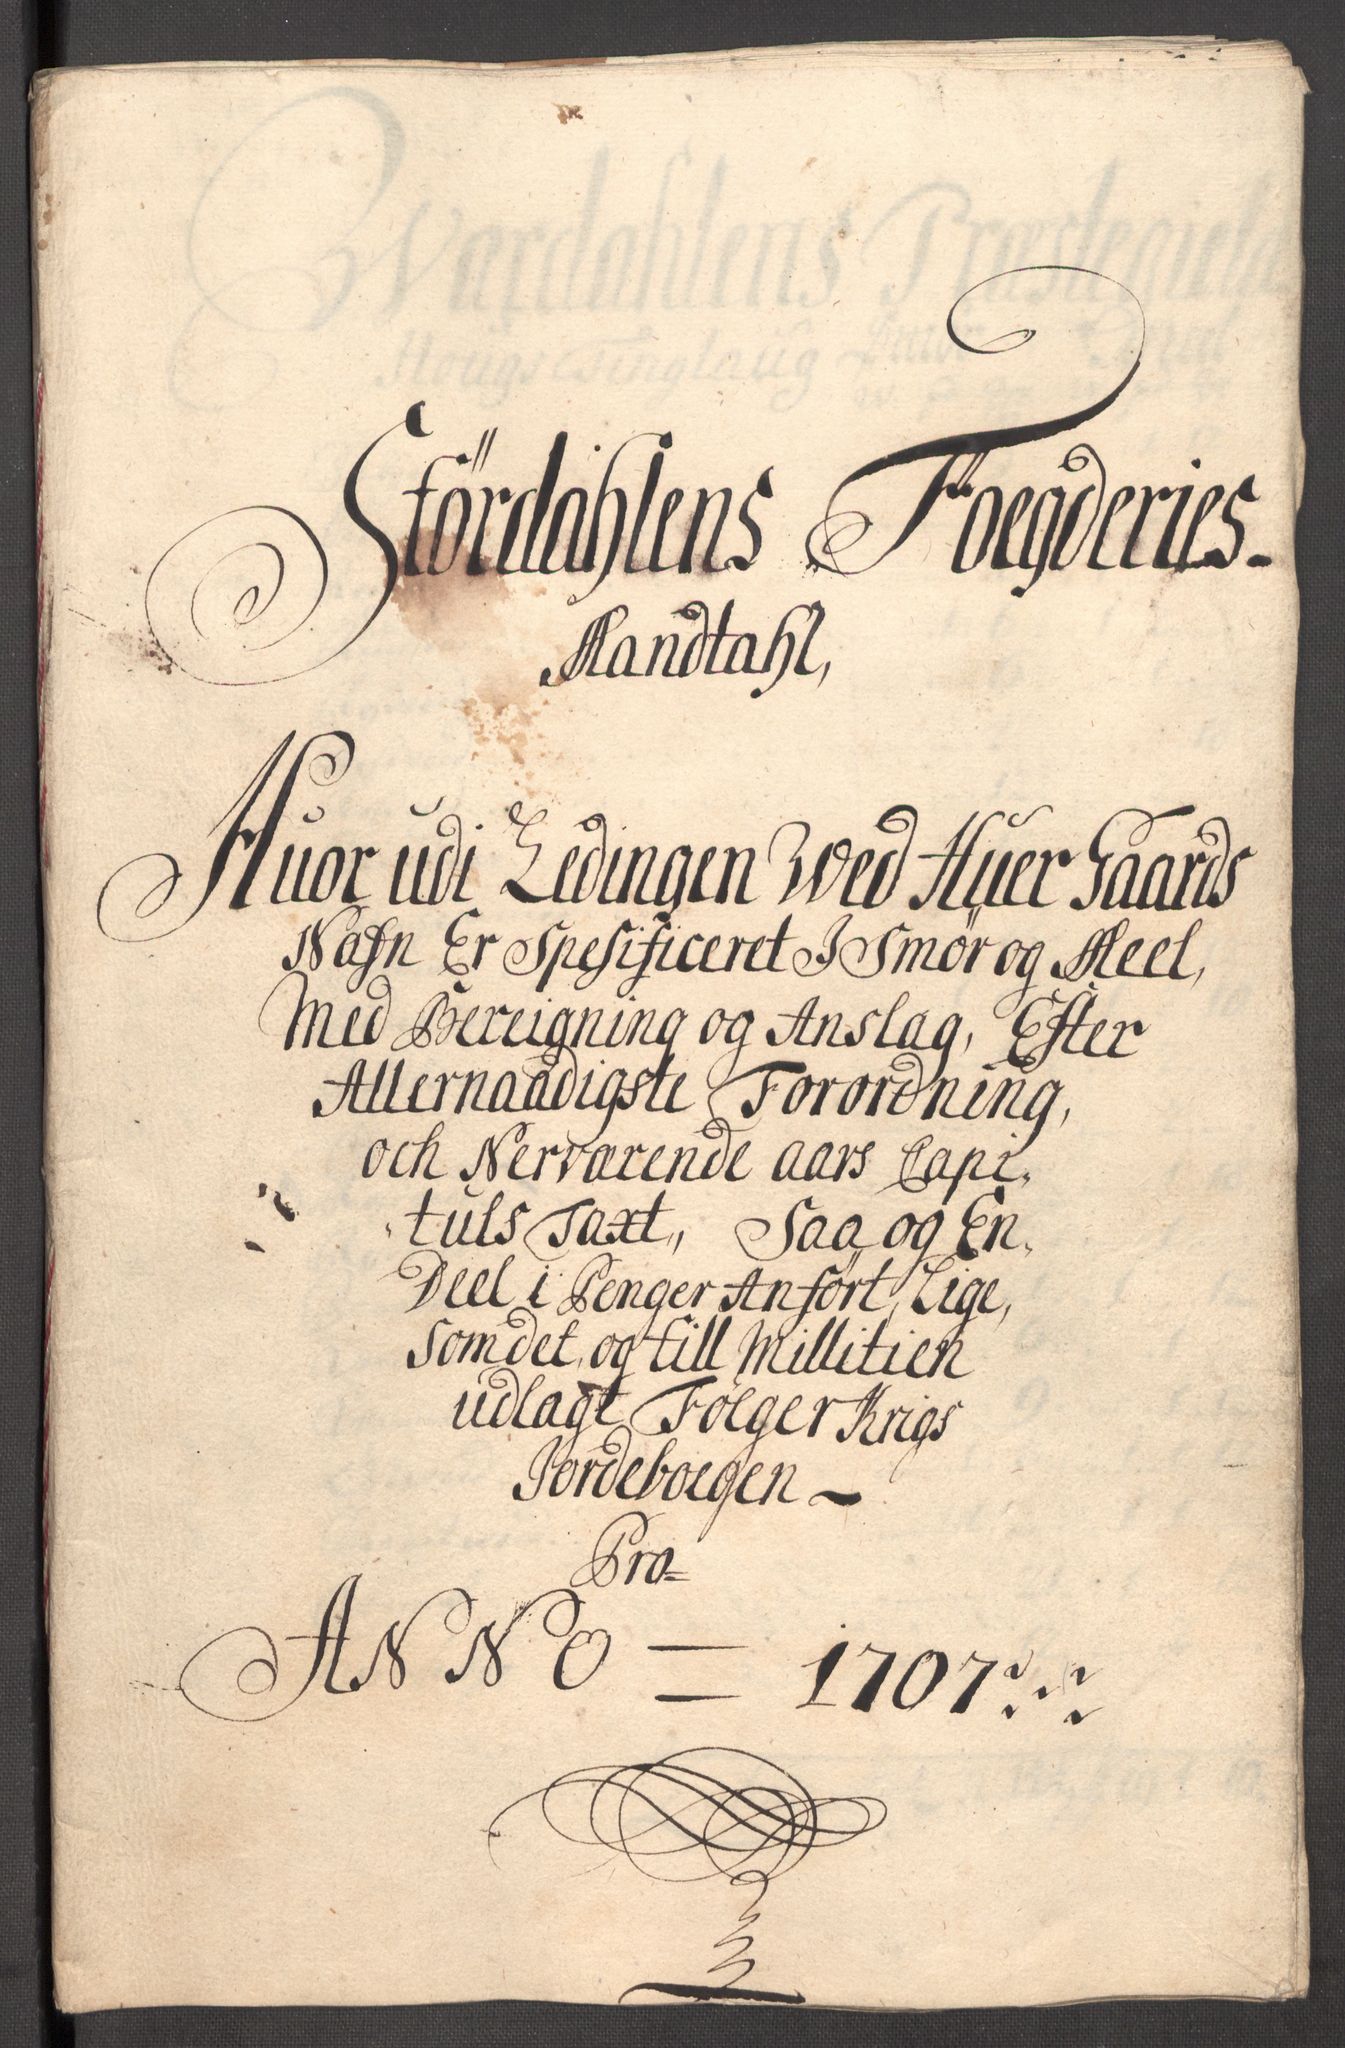 Stördahlens Foegderies-
Mandtahl,
Huor udi Ledingen Wed Huer Gaards
Nafn Er Spesificeret I Smör og Meel,
Med Bereigning og Anslag, Efter
Allernaadigste Forordning,
och Nerværende aars Capi-
tuls Taxt, Saa og En
Deel i Penger Anfört, Lige,
som det og till Millitien
udlagt Fölger Krigs
Jordeboegen -
Pro=
ANNO = 1707
Wærdahlens Præstegield
Hougs Tinglaug